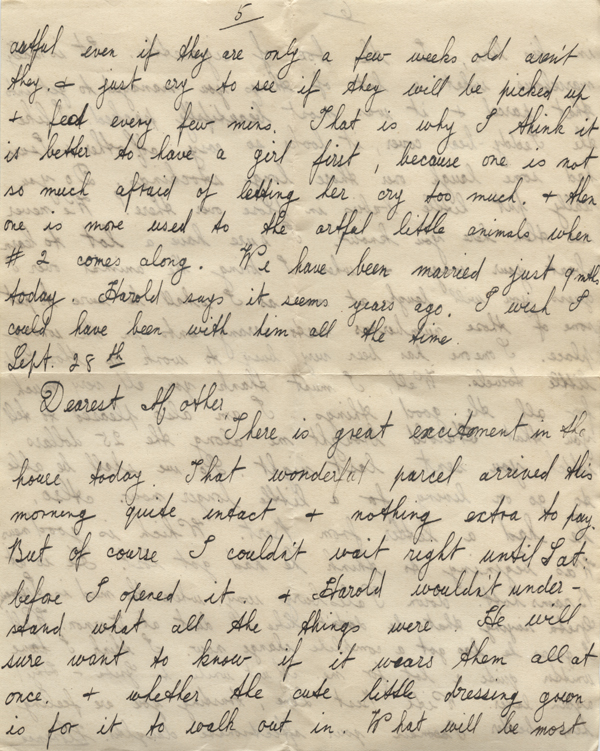 5
artful even if they are only a few weeks old aren't
they. & just cry to see if they will be picked up
& feed every few mins. That is why I think it
is better to have a girl first, because one is not
so much afraid of letting her cry too much. & then
one is more used to the artful little animals when
# 2 comes along. We have been married just 9 mths
today. Harold says it seems years ago. I wish I
could have been with him all the time.
Sept. 28th
Dearest Mother,
There is great excitment in the
house today. That wonderful parcel arrived this
morning quite intact & nothing extra to pay.
But of course I couldn't wait right until Sat.
before I opened it. & Harold wouldn't under-
stand what all the things were. He will
sure want to know if it wears them all at
once. & whether the cute little dressing gown
is for it to walk out in. What will be most